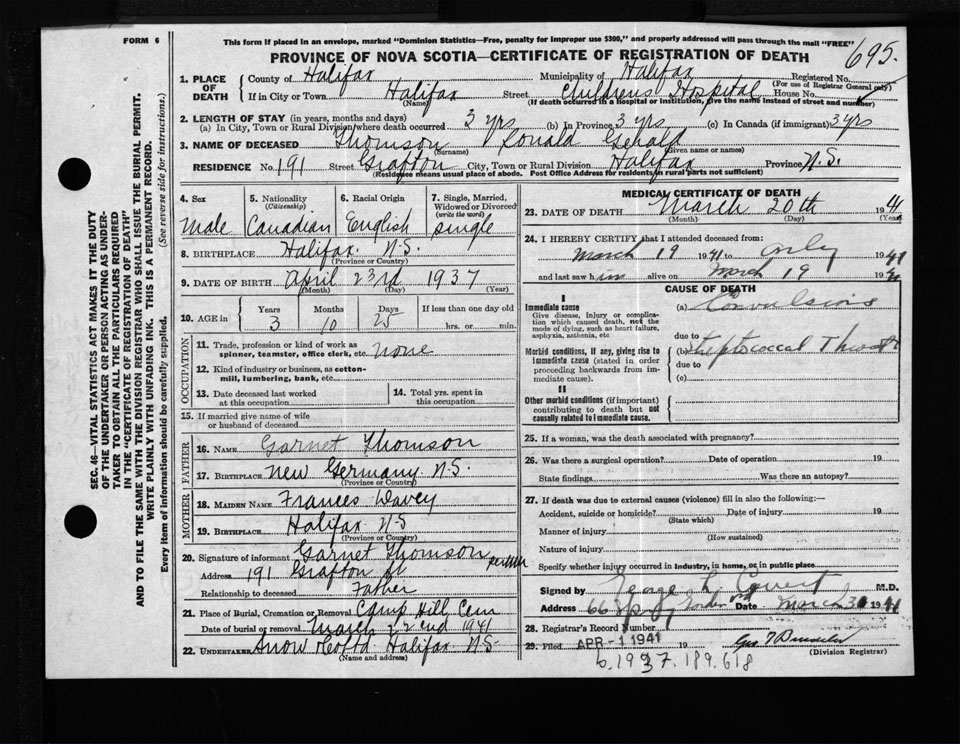 FORM 6
This form if placed in an envelope, marked "Dominion Statistics—Free, penalty for improper use $300," and properly addressed will pass through the mail "FREE"
PROVINCE OF NOVA SCOTIA—CERTIFICATE OF REGISTRATION OF DEATH
695.
1. PLACE OF DEATH { County of Halifax Municipality of Halifax Registered No.
(For use of Registrar General only)
If in City or Town Halifax Street Childrens Hospital House No.
(Name) (If death occurred in a hospital or institution, give the name instead of street and number)
2. LENGTH OF STAY (in years, months and days)
(a) In City, Town or Rural Division where death occurred 3 yrs (b) In Province 3 yrs (c) In Canada (if immigrant) 3 yrs
3. NAME OF DECEASED Thomson Ronald Gerald
(Surname) (Given name or names)
RESIDENCE No. 191 Street Grafton City, Town or Rural Division Halifax Province N.S.
(Residence means usual place of abode. Post Office Address for residents in rural parts not sufficient)
4. Sex 5. Nationality (Citizenship) 6. Racial Origin 7. Single, Married, Widowed or Divorced (write the word)
Male Canadian English single
8. BIRTHPLACE Halifax N.S.
(Province or Country)
9. DATE OF BIRTH April 23rd 1937
(Month) (Day) (Year)
10. AGE in { Years Months Days If less than one day old
3 10 25 hrs. or min.
OCCUPATION
11. Trade, profession or kind of work as spinner, teamster, office clerk, etc. none
12. Kind of industry or business, as cotton-mill, lumbering, bank, etc.
13. Date deceased last worked at this occupation
14. Total yrs. spent in this occupation
15. If married give name of wife or husband of deceased
FATHER
16. NAME Garnet Thomson
17. BIRTHPLACE New Germany N.S.
(Province or Country)
MOTHER
18. MAIDEN NAME Frances Davey
19. BIRTHPLACE Halifax N.S
(Province or Country)
20. Signature of informant Garnet Thomson
Address 191 Grafton St
Relationship to deceased Father
21. Place of Burial, Cremation or Removal Camp Hill Cem
Date of burial or removal March 22nd 1941
22. UNDERTAKER Snow Halifax N.S.
(Name and address)
MEDICAL CERTIFICATE OF DEATH
23. DATE OF DEATH March 20th 1941
(Month) (Day) (Year)
24. I HEREBY CERTIFY that I attended deceased from:
March 19 1941 to only 1941
and last saw him alive on March 19 1941
CAUSE OF DEATH
I
Immediate cause (a) Convulsions
Give disease, injury or complication which caused death, not the mode of dying, such as heart failure, asphyxia, asthenia, etc
due to
Morbid conditions, if any, giving rise to immediate cause (stated in order proceeding backwards from immediate cause).
(b) Streptococcal Throat
due to
(c)
II
Other morbid conditions (if important) contributing to death but not causally related to immediate cause.
25. If a woman, was the death associated with pregnancy?
26. Was there a surgical operation? Date of operation 19
State findings Was there an autopsy?
27. If death was due to external causes (violence) fill in also the following:—
Accident, suicide or homicide? Date of injury 19
(State which)
Manner of injury
(How sustained)
Nature of injury
Specify whether injury occurred in industry, in home, or in public place
Signed by George M.D.
Address 66 Date March 1941
28. Registrar's Record Number
29. Filed APR -1 1941 19
(Division Registrar)
b.1937.189.618
SEC. 46—VITAL STATISTICS ACT MAKES IT THE DUTY
OF THE UNDERTAKER OR PERSON ACTING AS UNDER-
TAKER TO OBTAIN ALL THE PARTICULARS REQUIRED
IN THE "CERTIFICATE OF REGISTRATION OF DEATH"
AND TO FILE THE SAME WITH THE DIVISION REGISTRAR WHO SHALL ISSUE THE BURIAL PERMIT.
WRITE PLAINLY WITH UNFADING INK. THIS IS A PERMANENT RECORD.
Every item of information should be carefully supplied. (See reverse side for instructions.)